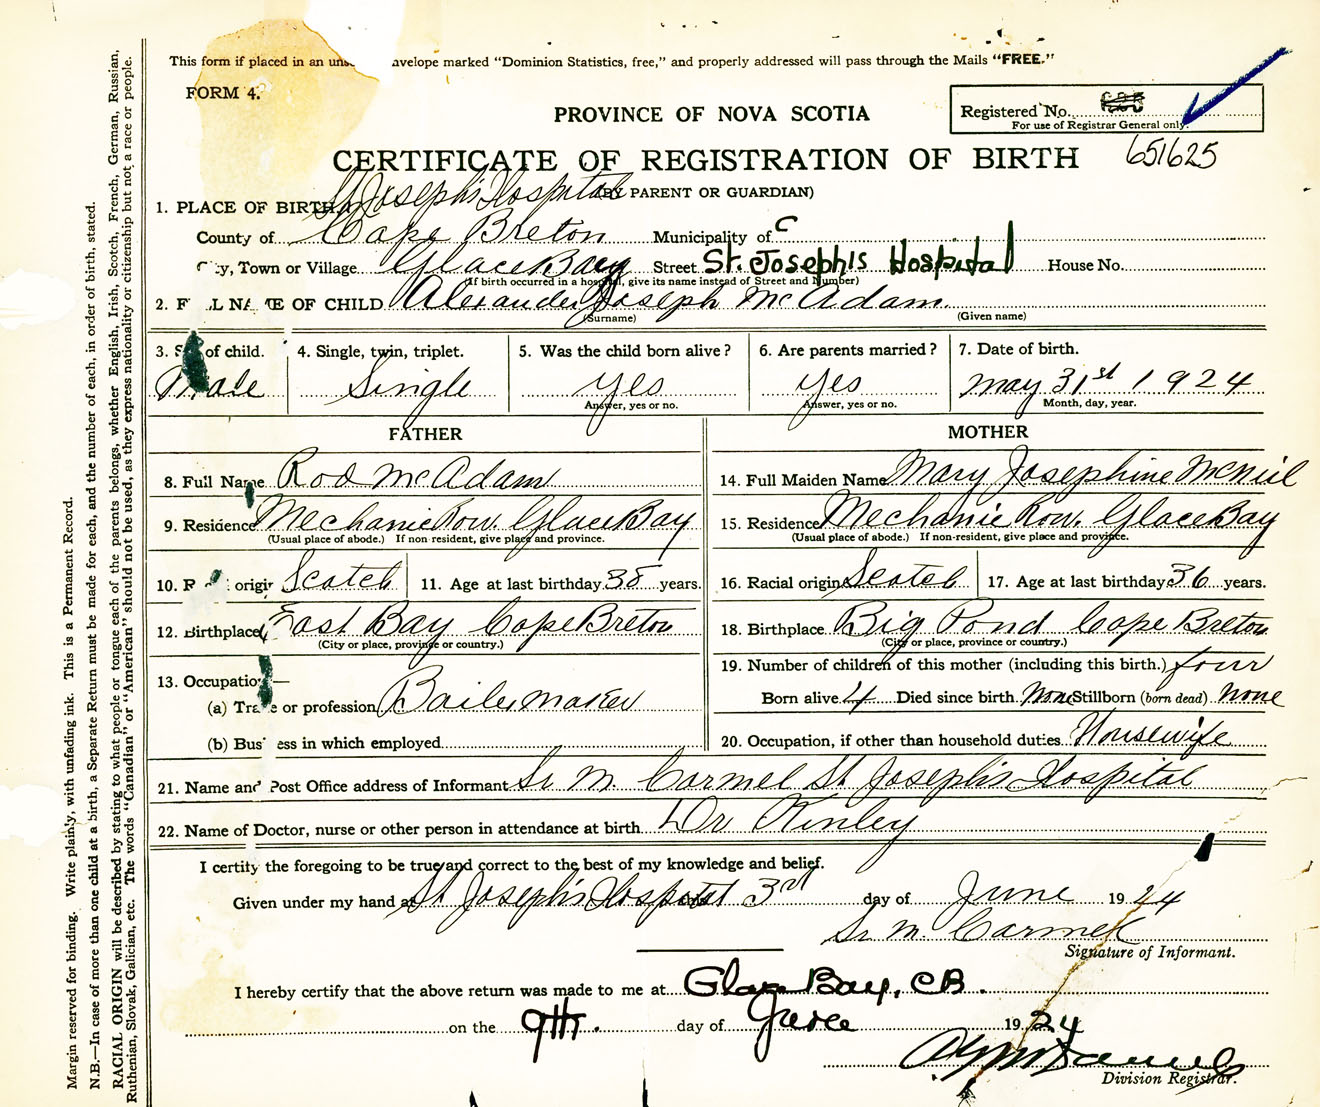 This form if placed in an uns nvelope marked "Dominion Statistics, free," and properly addressed will pass through the Mails "FREE."
FORM 4.
PROVINCE OF NOVA SCOTIA
Registered No.
For use of Registrar General only.
651625
CERTIFICATE OF REGISTRATION OF BIRTH
(BY PARENT OR GUARDIAN)
1. PLACE OF BIRTH St Joseph's Hospital
County of Cape Breton Municipality of C
City, Town or Village Glace Bay Street St. Josephs Hospital House No.
(If birth occurred in a hospital, give its name instead of Street and Number)
2. FULL NAME OF CHILD Alexander Joseph McAdam
(Surname) (Given name)
3. Sex of child. 4. Single, twin, triplet. 5. Was the child born alive? 6. Are parents married? 7. Date of birth.
Male Single Yes Yes May 31st 1924
Answer, yes or no. Answer, yes or no. Month, day, year.
FATHER MOTHER
8. Full Name Rod McAdam 14. Full Maiden Name Mary Josephine McNiel
9. Residence Mechanic Row. Glace Bay 15. Residence Mechanic Row. Glace Bay
(Usual place of abode.) If non-resident, give place and province. (Usual place of abode.) If non-resident, give place and province.
10. R origin Scotch 11. Age at last birthday 38 years. 16. Racial origin Scotch 17. Age at last birthday 36 years.
12. Birthplace East Bay Cape Breton 18. Birthplace Big Pond Cape Breton
(City or place, province or country.) (City or place, province or country.)
19. Number of children of this mother (including this birth.) four
13. Occupation—
(a) Trade or profession Boilermaker Born alive 4 Died since birth None Stillborn (born dead) None
(b) Business in which employed 20. Occupation, if other than household duties Housewife
21. Name and Post Office address of Informant Sr M. Carmel St Joseph's Hospital
22. Name of Doctor, nurse or other person in attendance at birth Dr Kinley
I certify the foregoing to be true and correct to the best of my knowledge and belief.
Given under my hand at St Joseph's Hospital 3rd day of June 1924
Sr M. Carmel
Signature of Informant.
I hereby certify that the above return was made to me at Glace Bay, CB.
on the 9th. day of June 1924
Division Registrar.
Margin reserved for binding. Write plainly, with unfading ink. This is a Permanent Record.
N.B.—In case of more than one child at a birth, a Separate Return must be made for each, and the number of each, in order of birth, stated.
RACIAL ORIGIN will be described by stating to what people or tongue each of the parents belongs, whether English, Irish, Scotch, French, German, Russian,
Ruthenian, Slovak, Galician, etc. The words "Canadian" or "American" should not be used, as they express nationality or citizenship but not a race or people.